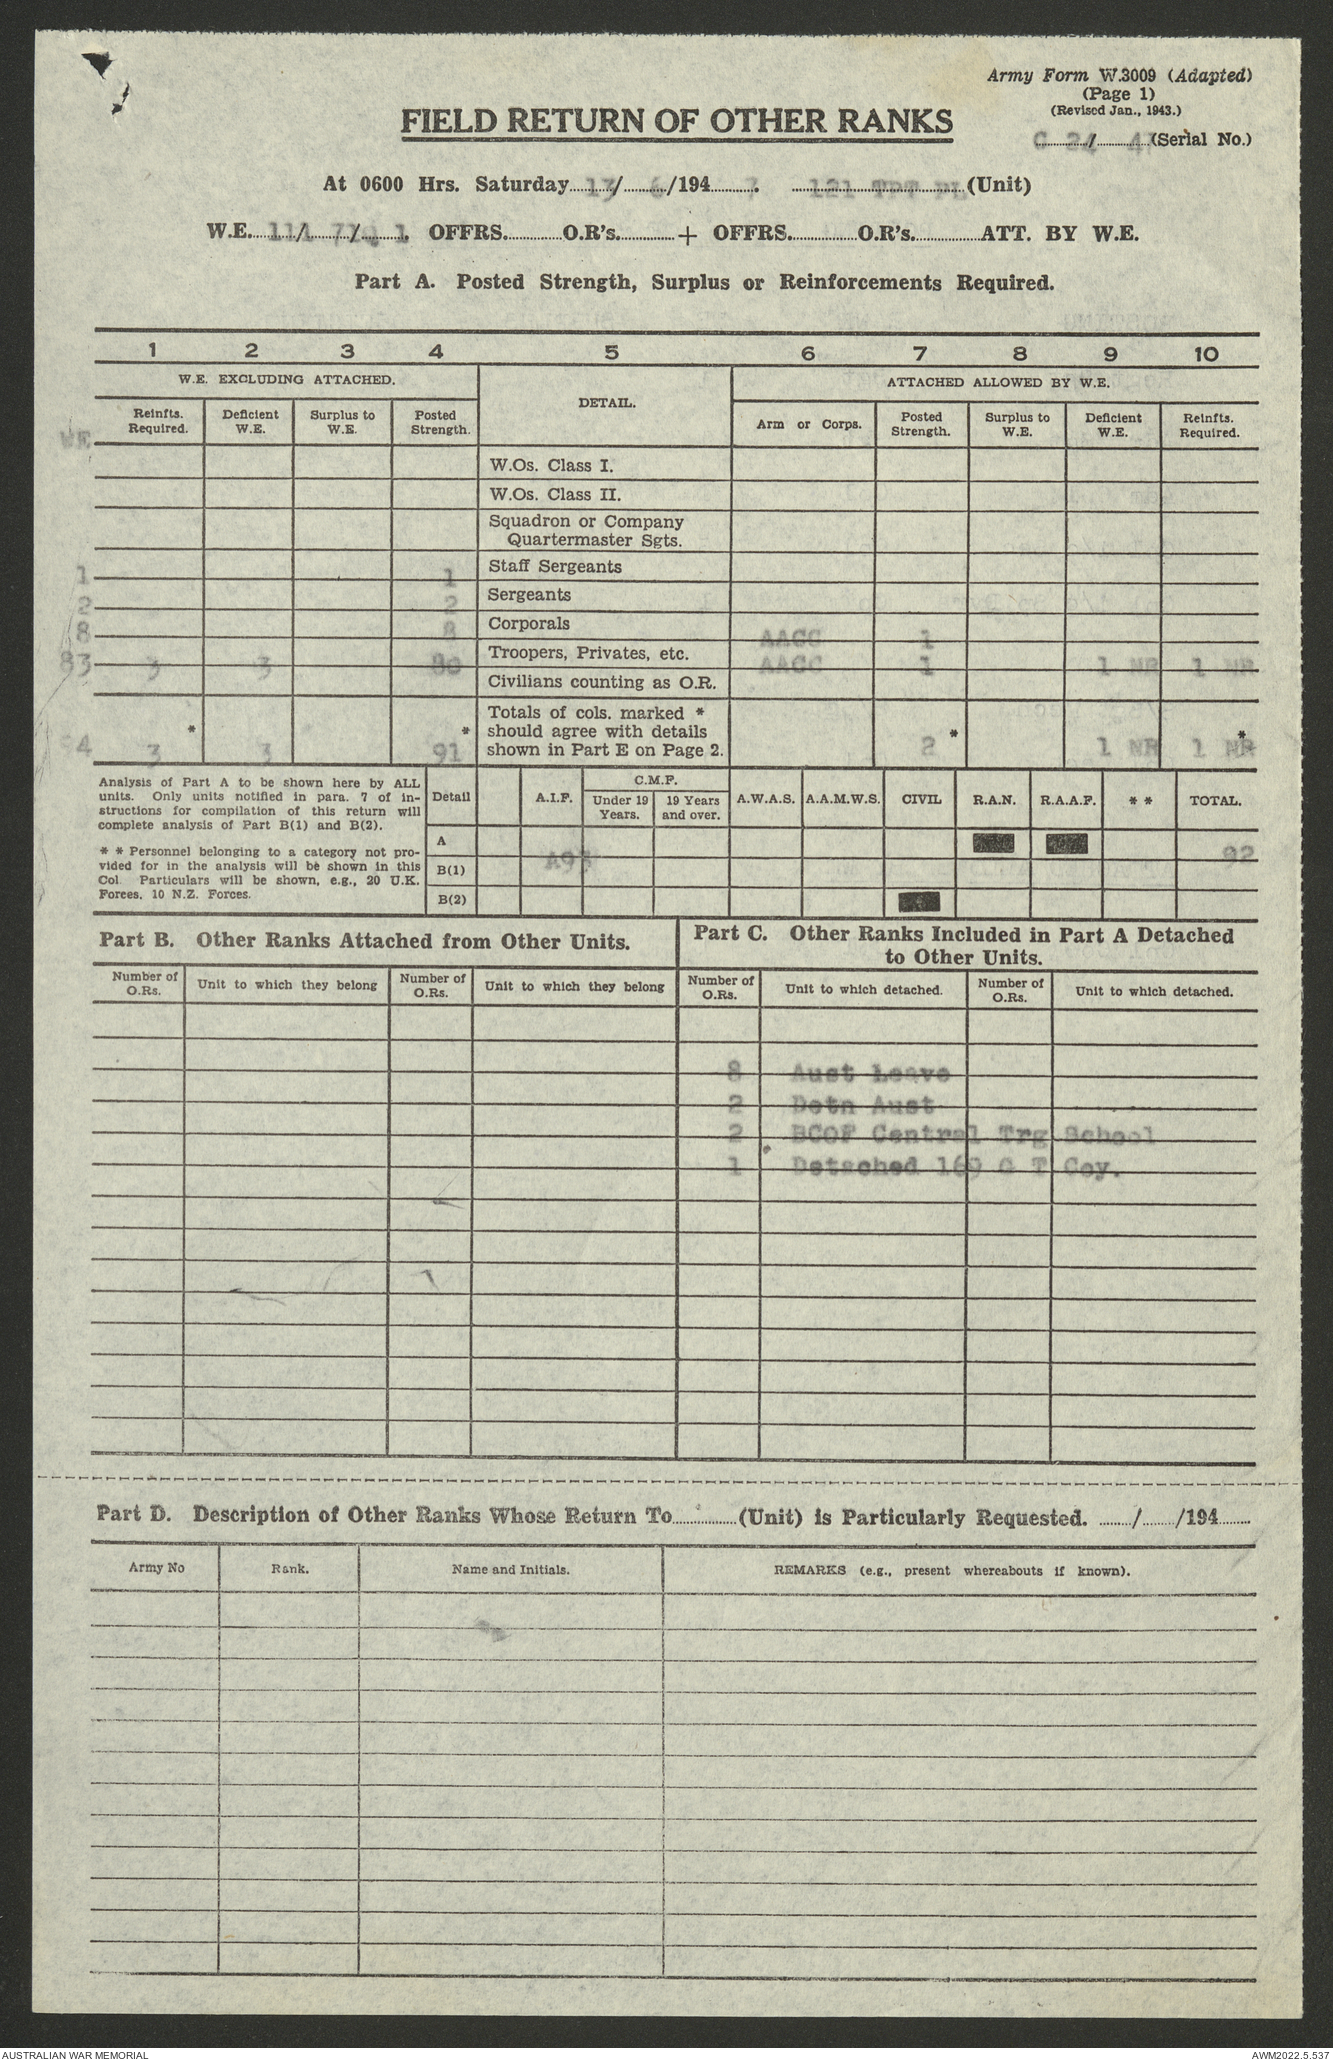 Army Form W.3009 (Adapted)
(Page 1)
(Revised Jan., 1943.)
FIELD RETURN OF OTHER RANKS
C 24 / 47 (Serial No.)
At 0600 Hrs. Saturday 13 / 6 /194 7 . 121 TPT PL (Unit)
W.E. 11A / 77Q / 1 . OFFRS. O.R's. + OFFRS. O.R's. ATT. BY W.E.
Part A. Posted Strength, Surplus or Reinforcements Required.
1 2 3 4 5 6 7 8 9 10
W.E. EXCLUDING ATTACHED. DETAIL. ATTACHED ALLOWED BY W.E.
WE Reinfts. Required. Deficient W.E. Surplus to W.E. Posted Strength. Arm or Corps. Posted Strength. Surplus to W.E. Deficient W.E. Reinfts. Required.
W.Os. Class I.
W.Os. Class II.
Squadron or Company
Quartermaster Sgts.
1 1 Staff Sergeants
2 2 Sergeants
8 8 Corporals AACC 1
83 3 3 80 Troopers, Privates, etc. AACC 1 1 NR 1 NR
Civilians counting as O.R.
Totals of cols. marked *
* * should agree with details * *
94 3 3 91 shown in Part E on Page 2. 2 1 NR 1 NR
Analysis of Part A to be shown here by ALL
units. Only units notified in para. 7 of in-
structions for compilation of this return will
complete analysis of Part B(1) and B(2).
* * Personnel belonging to a category not pro-
vided for in the analysis will be shown in this
Col. Particulars will be shown, e.g., 20 U.K.
Forces, 10 N.Z. Forces.
Detail A.I.F. C.M.F. Under 19 Years. 19 Years and over. A.W.A.S. A.A.M.W.S. CIVIL R.A.N. R.A.A.F. * * TOTAL.
A A93 92
B(1)
B(2)
Part B. Other Ranks Attached from Other Units.
Number of O.Rs. Unit to which they belong Number of O.Rs. Unit to which they belong
Part C. Other Ranks Included in Part A Detached
to Other Units.
Number of O.Rs. Unit to which detached. Number of O.Rs. Unit to which detached.
8 Aust Leave
2 Detn Aust
2 BCOF Central Trg School
1 Detached 169 G T Coy.
Part D. Description of Other Ranks Whose Return To (Unit) is Particularly Requested. / /194
Army No Rank. Name and Initials. REMARKS (e.g., present whereabouts if known).
AUSTRALIAN WAR MEMORIAL AWM2022.5.537